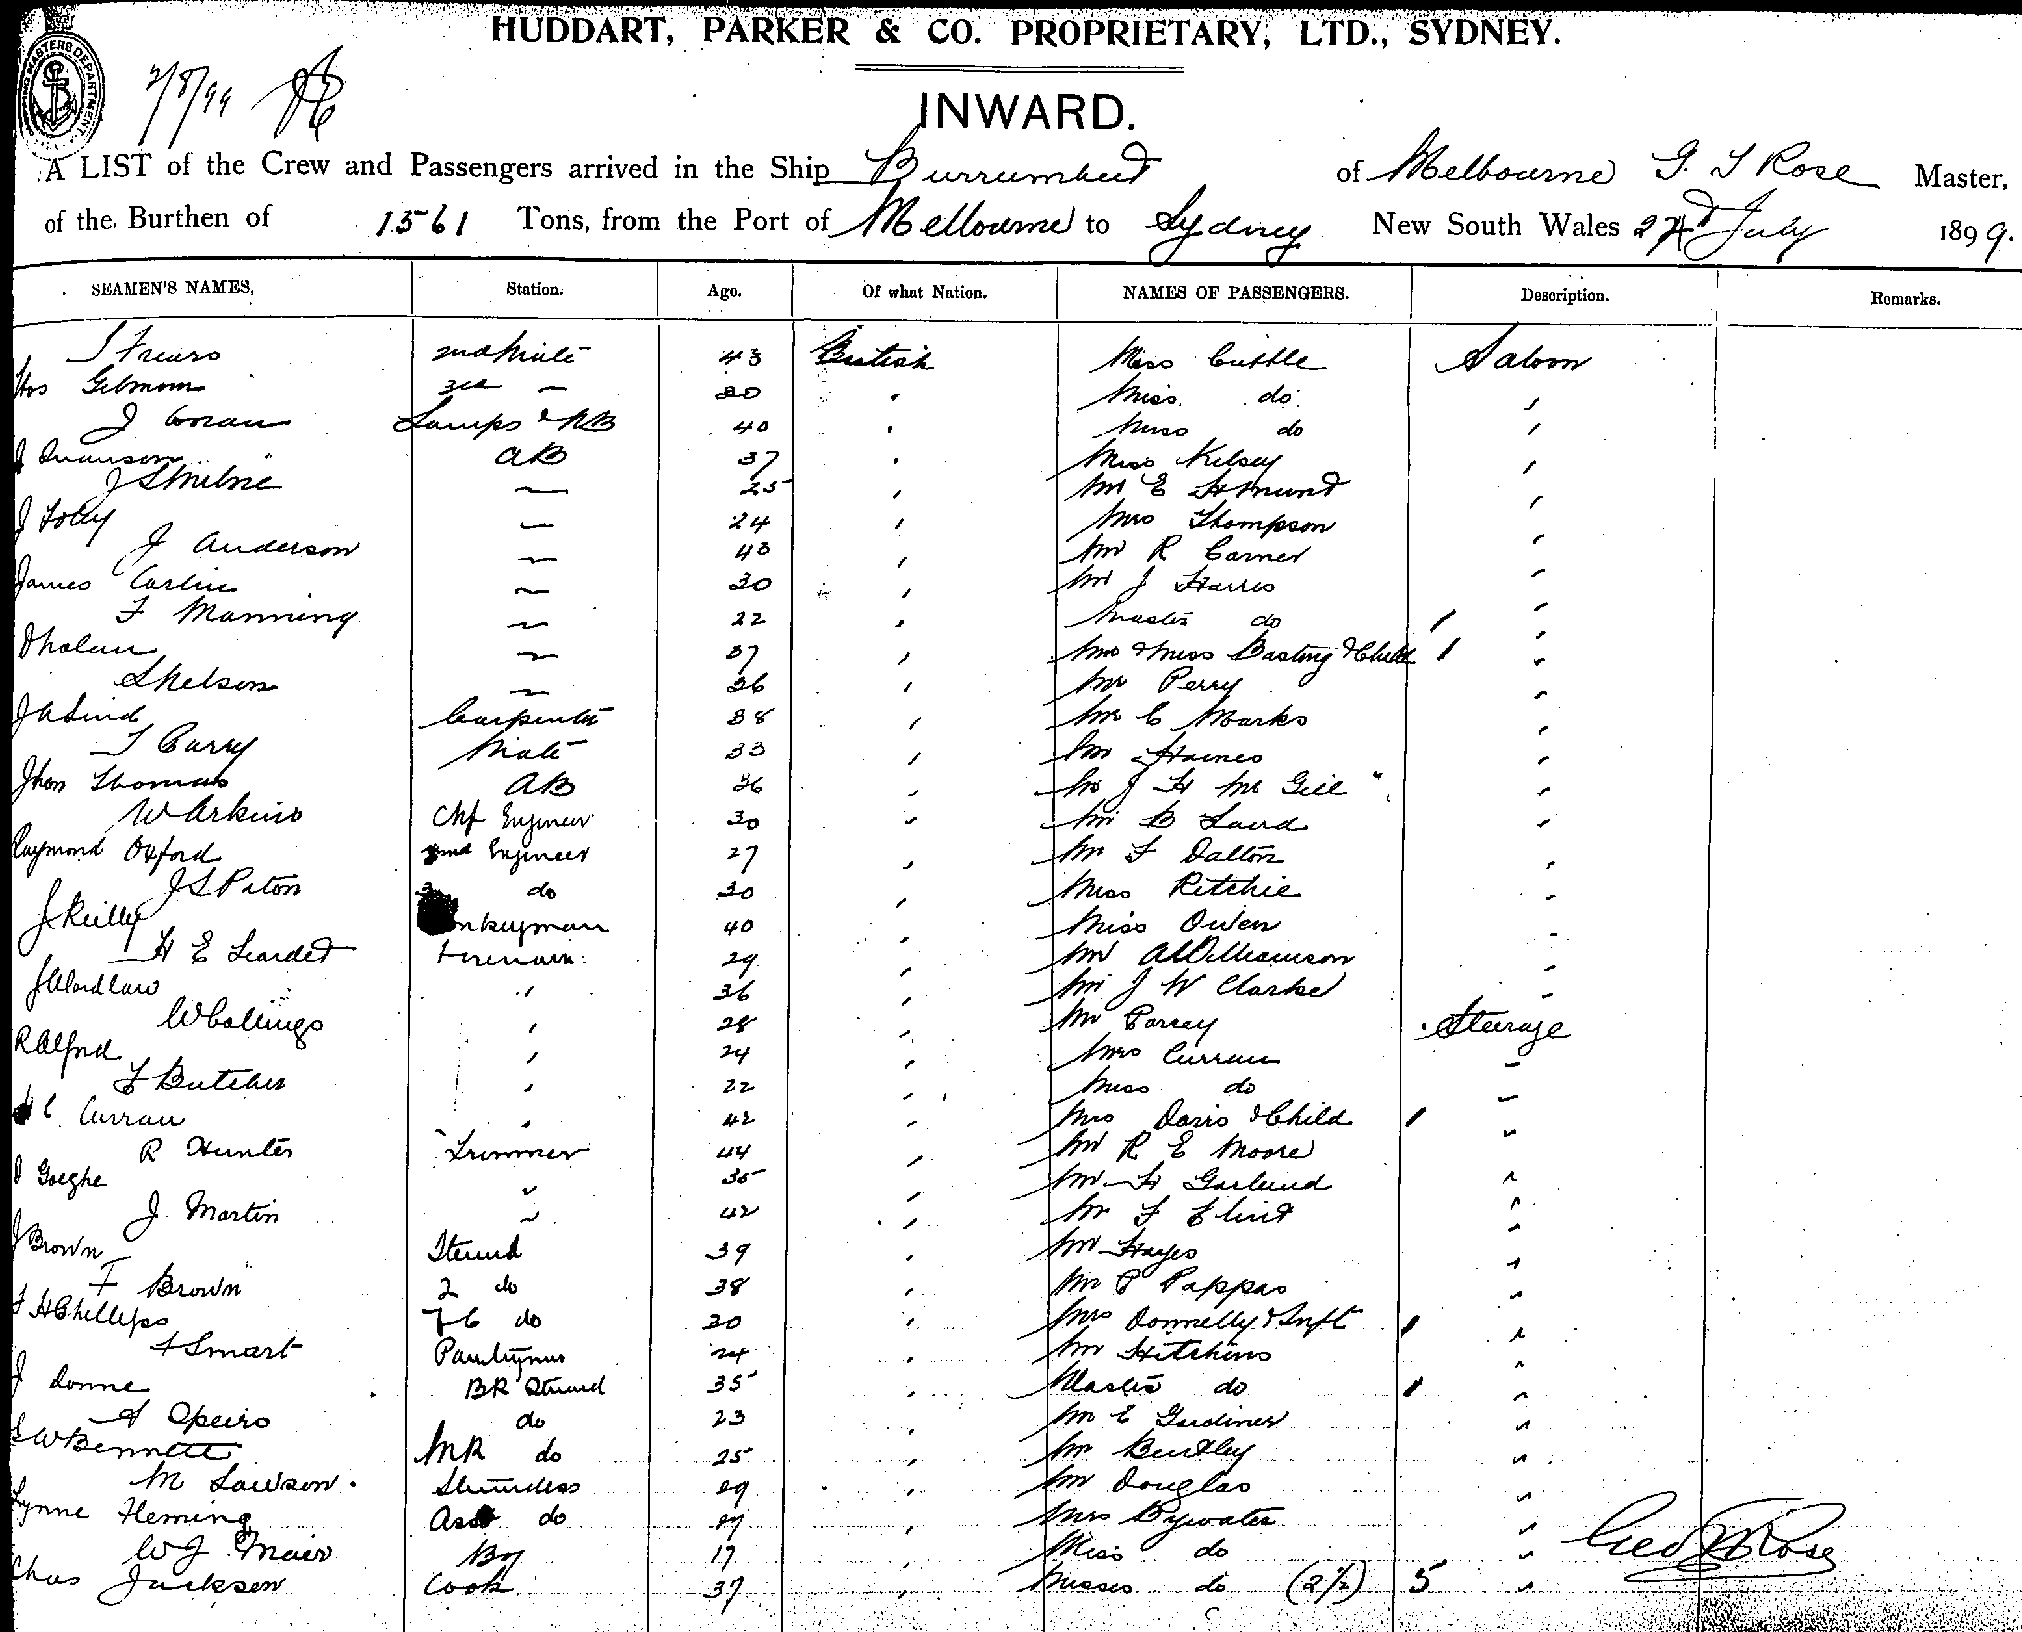 HUDDART, PARKER & CO. PROPRIETARY, LTD., SYDNEY.
2/8/99
INWARD.
A LIST of the Crew and Passengers arrived in the Ship Burrumbeet of Melbourne G. T Rose Master,
of the Burthen of 1561 Tons, from the Port of Melbourne to Sydney New South Wales July 1899.
SEAMEN'S NAMES, Station. Age. Of what Nation. NAMES OF PASSENGERS. Description. Remarks.
2nd Mate 43 British Miss Cuttle Saloon
Thos 3rd Miss do
J Lamps & AB 40 Miss do
J Swanson AB 37 Miss Kelsey
J S Milne 25 Mr E
J Foley 24 Mrs Thompson
J Anderson 43 Mr R Carner
James Carlin 30 Mr J Harris
F Manning 22 Master do
37 Mr & Miss Basting & Child
S Nelson 36 Mr Perry
J A Lind Carpenter 38 Mr C Marks
T Carry Mate 33 Mr Haines
Jhon Thomas AB 36 Mr J H Mc Gill
W Arkins Chf Engineer 30 Mr B Laird
Raymond Oxford 2nd Engineer 27 Mr F Dalton
J S Paton 3 do 30 Miss Ritchie
J Reilly 40 Miss Owen
H E Fireman 29 Mr A Williamson
J Wardlaw 36 Mr J W Clarke
W Collings 28 Mr Steerage
R Alford 24 Mrs Curran
F Butcher 22 Miss do
C Curran 42 Mrs Davis & Child
R Hunter Trimmer 44 Mr R E Moore
35 Mr H Garland
J Martin 42 Mr F Flint
J Brown Steward 39 Mr Hayes
F Brown 2 do 38 Mr P Pappas
F H Phillips F C do 20 Mrs Donnelly & Inft
A Smart Pantryman 24 Mr Hitchins
J Donne BR Steward 35 Master do
A Speirs do 23 Mr E Gardiner
W Bennett MR do 25 Mr Bentley
M Lawson Stewardess 29 Mr Douglas
Lynne Fleming Asst do Mrs Bywater
W J Mair Boy 17 Miss do
Chas Jackson Cook 37 Misses do (2/2) 5
Geo T Rose